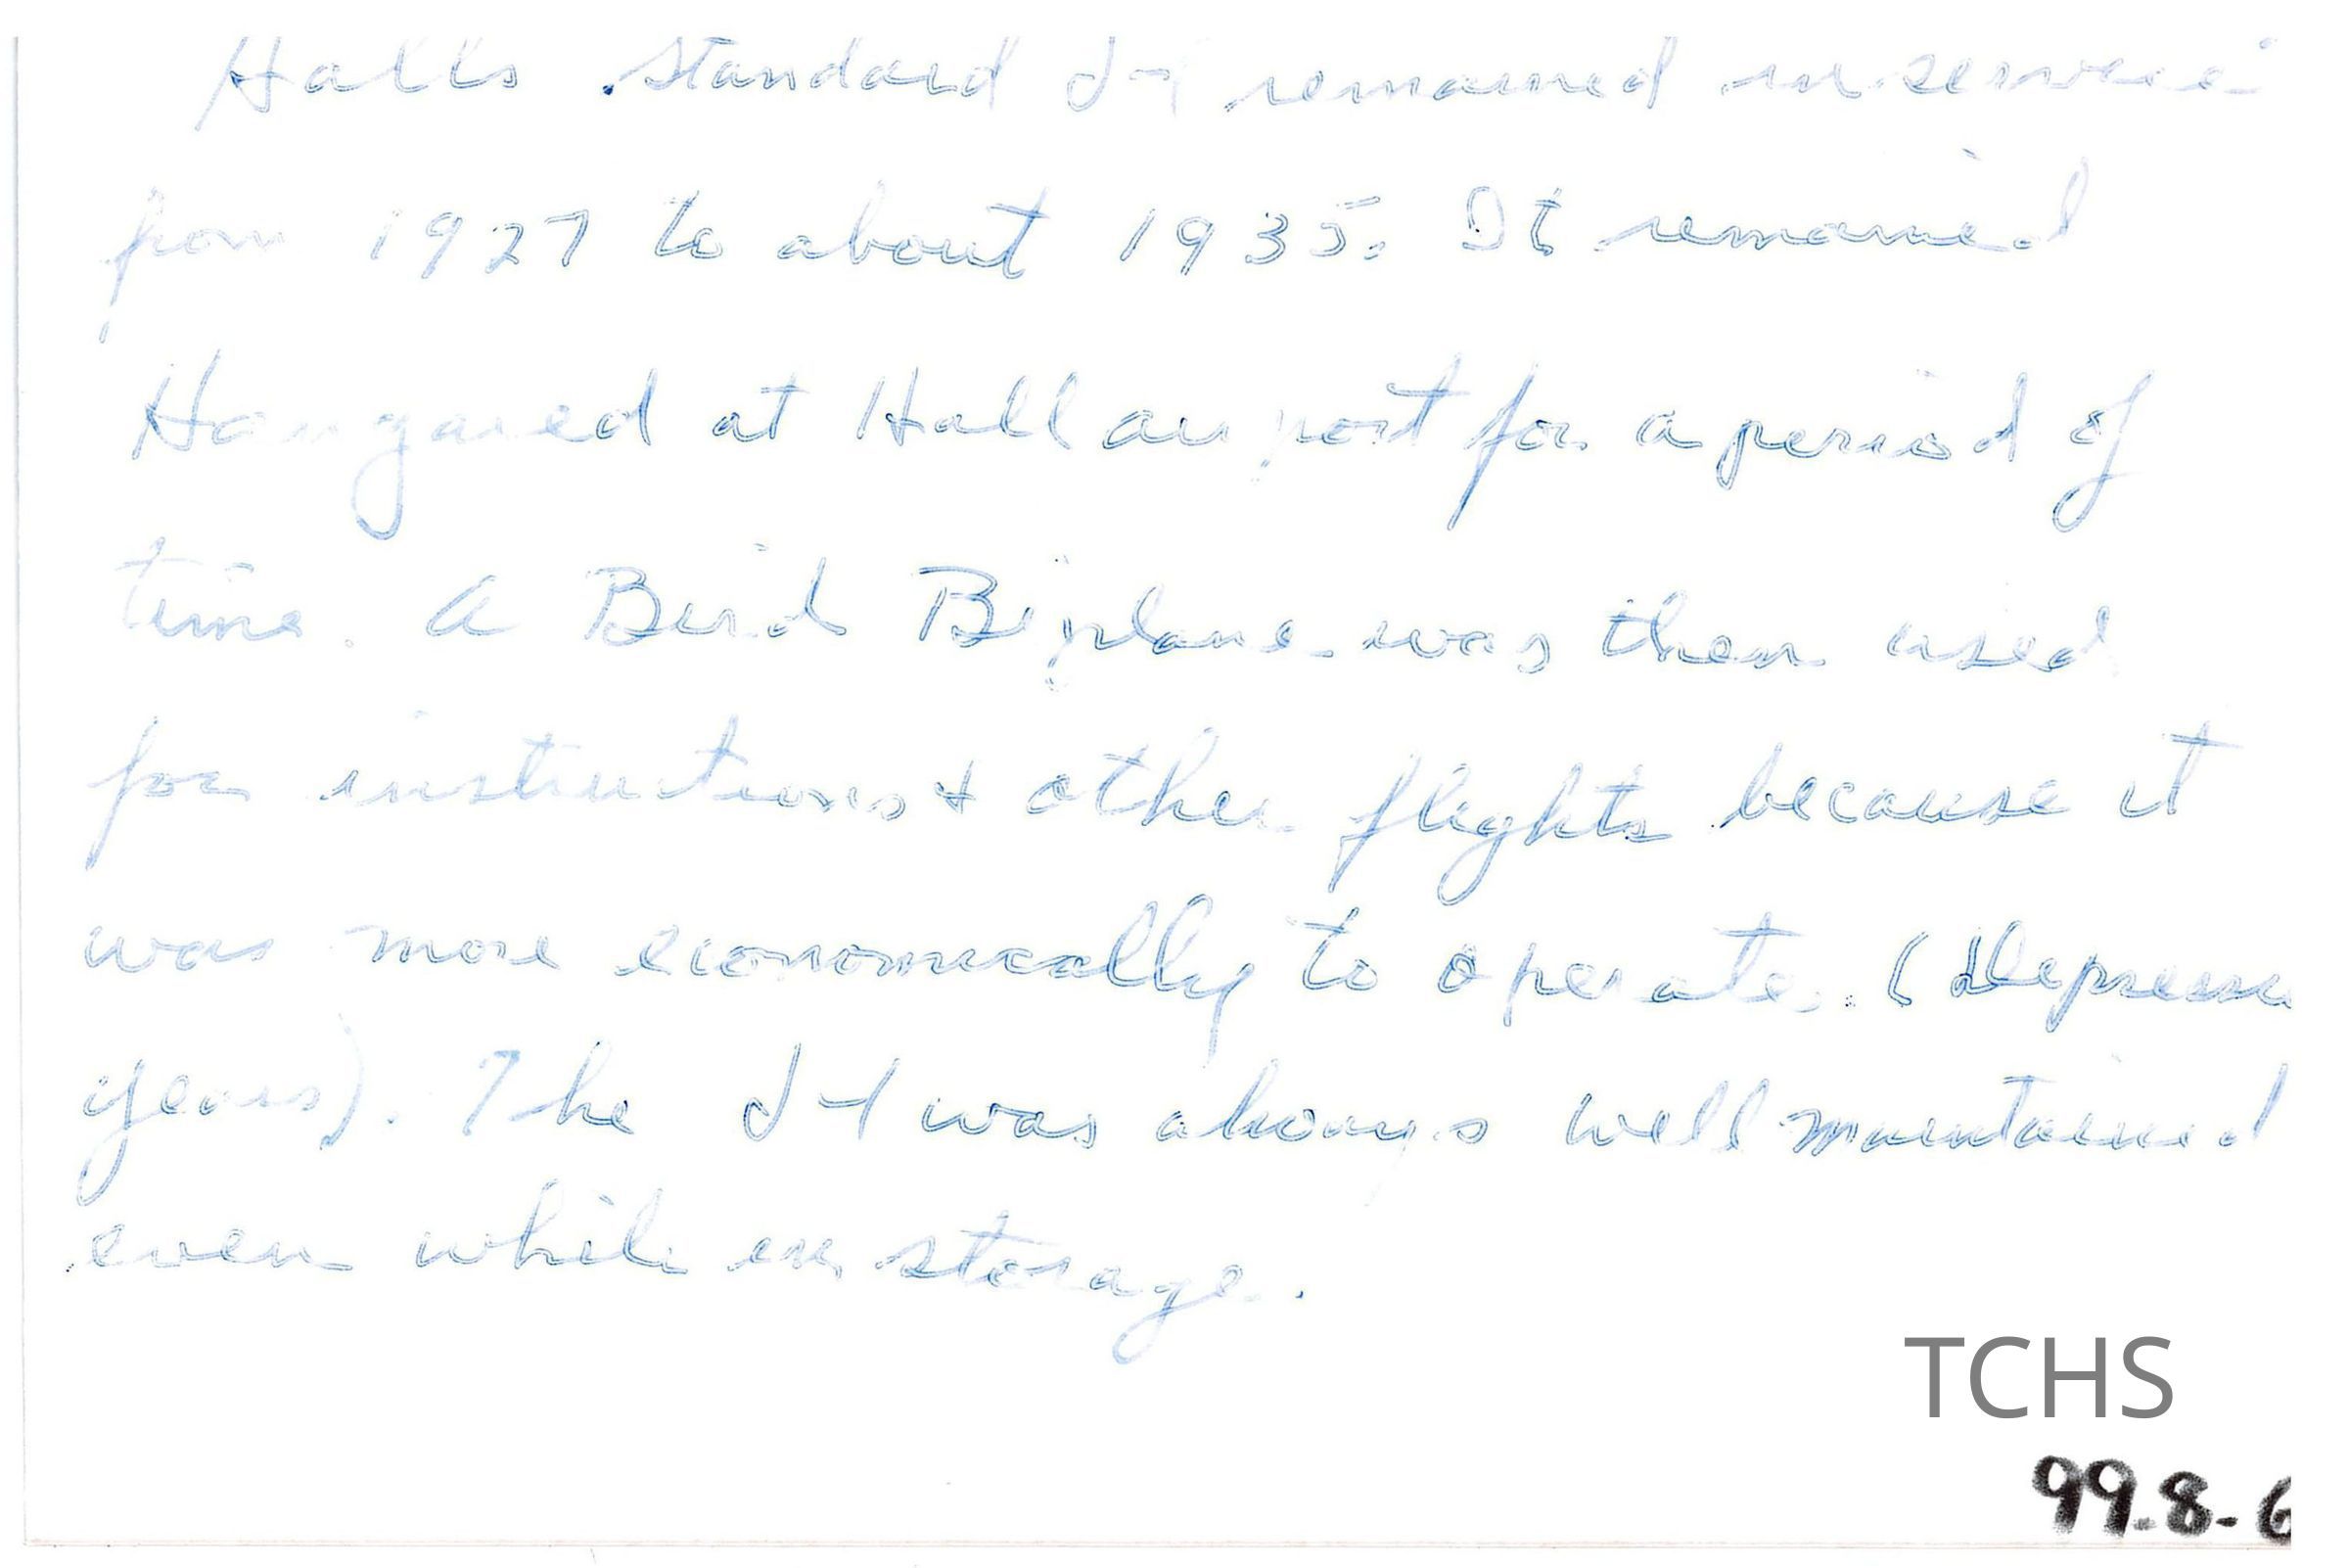 Halls Standard J-1 remained in service
from 1927 to about 1935. It remained
Hangared at Hall airport for a period of
time. A Bird Biplane was then used
for instructions & other flights because it
was more economically to operate. (Depress
years). The J-1 was always well maintained
even while in storage.
TCHS
99.8-6